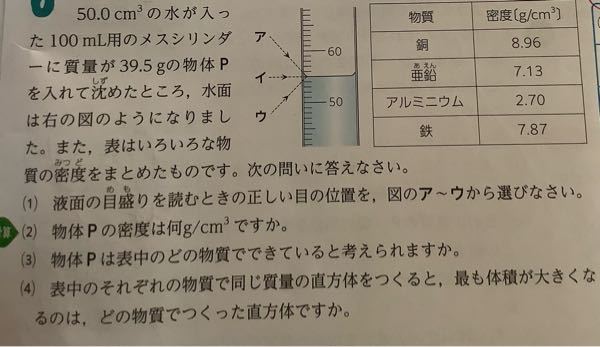 50.0 cm³の水が入っ
た100 mL用のメスシリンダ
ーに質量が39.5 gの物体P
を入れて沈めたところ，水面
しず
は右の図のようになりまし
た。また，表はいろいろな物
質の密度をまとめたものです。次の問いに答えなさい。
みつ ど
ア
イ
ウ
60
50
物質 密度〔g/cm³〕
銅 8.96
亜鉛 7.13
あえん
アルミニウム 2.70
鉄 7.87
(1) 液面の目盛りを読むときの正しい目の位置を，図のア～ウから選びなさい。
め も
(2) 物体Pの密度は何g/cm³ですか。
(3) 物体Pは表中のどの物質でできていると考えられますか。
(4) 表中のそれぞれの物質で同じ質量の直方体をつくると，最も体積が大きくな
るのは，どの物質でつくった直方体ですか。